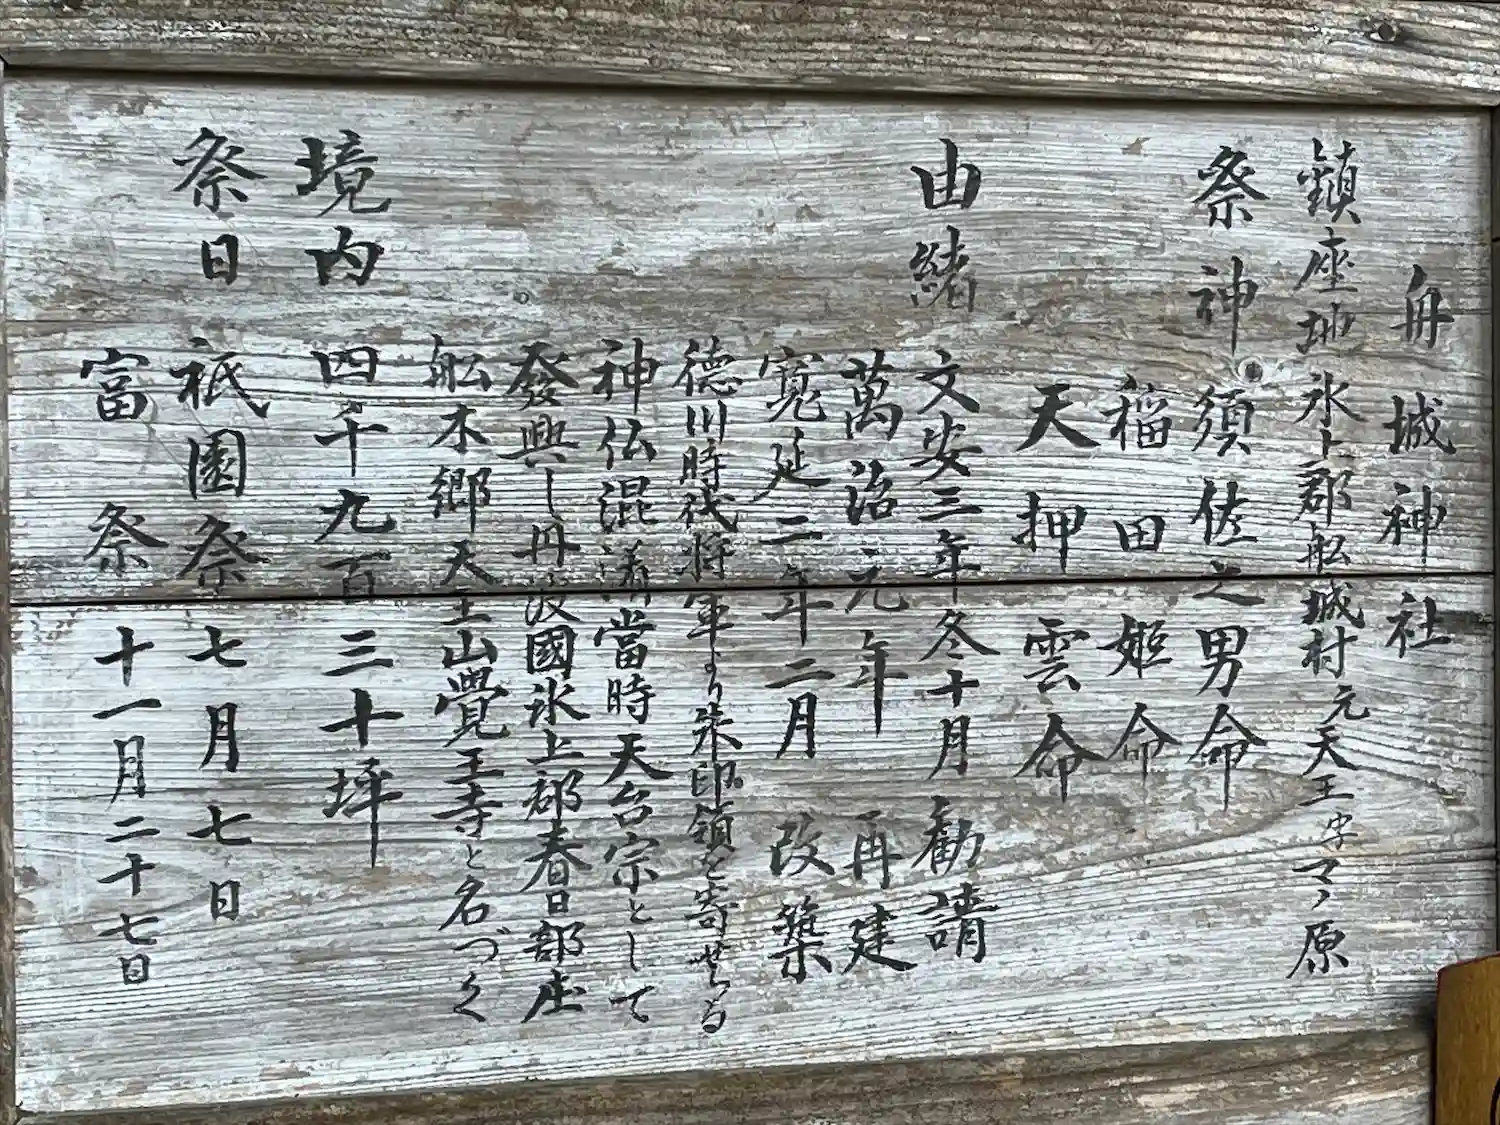 舟城神社
鎮座地 氷上郡舩城村元天王字マノ原
祭神 須佐之男命
稲田姫命
天押雲命
由緒 文安三年冬十月 勧請
萬治元年 再建
寛延二年二月 改築
徳川時代将軍より朱印領を寄せらる
神仏混淆當時天台宗として
發興し丹波國氷上郡春日部座
舩木郷天王山覺王寺と名づく
境内 四千九百三十坪
祭日 祇園祭 七月七日
富祭 十一月二十七日